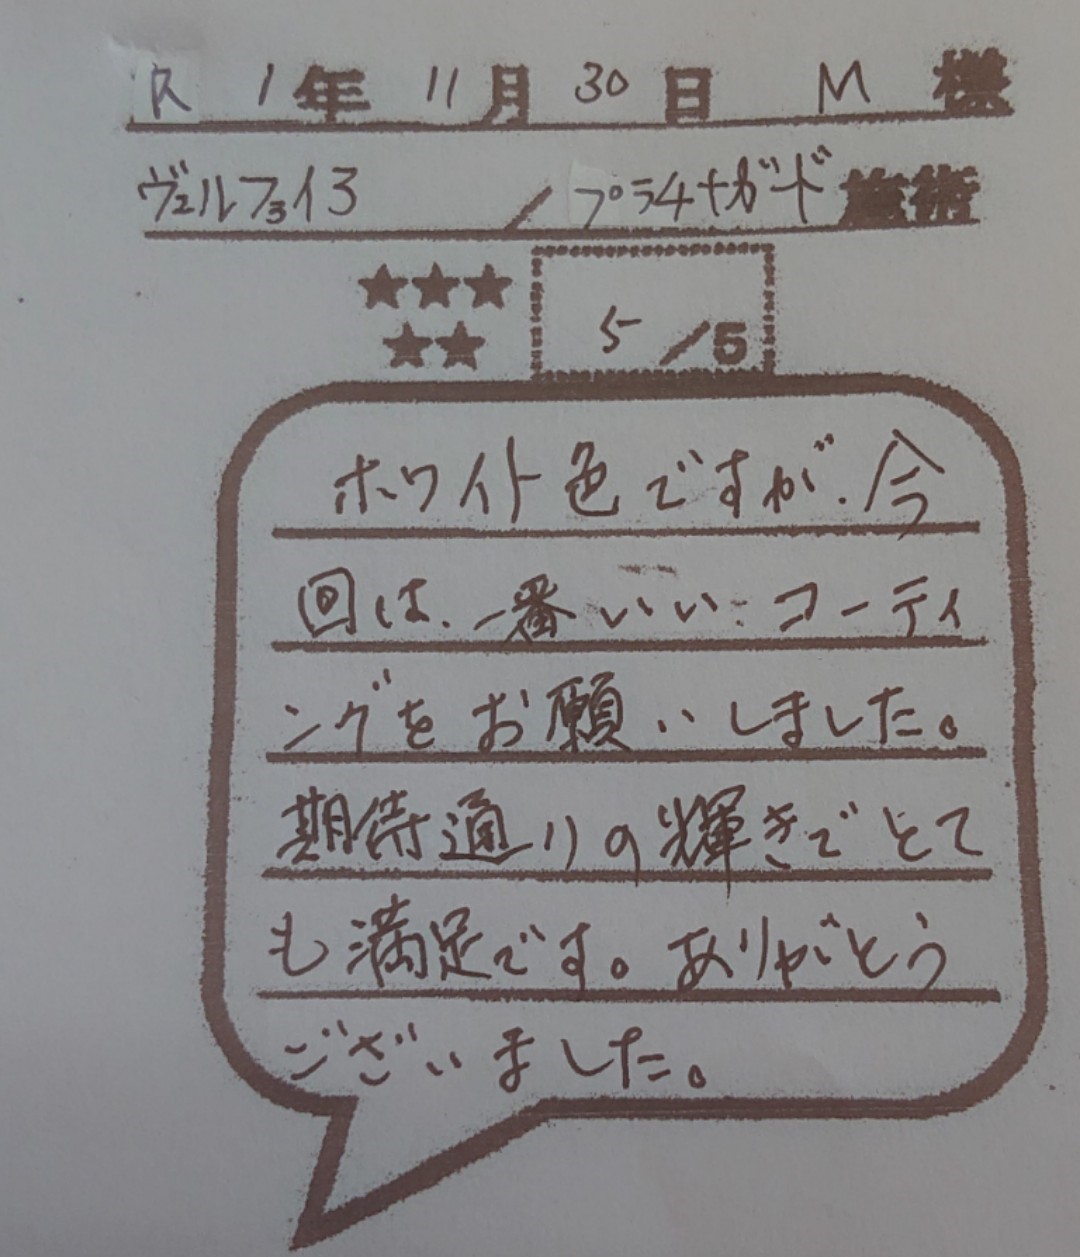 R 1年 11月 30日 M 様
ヴェルファイヤ / プラチナガード施術
★★★
★★
5/5
ホワイト色ですが、今
回は、一番いい、コーティ
ングをお願いしました。
期待通りの輝きでとて
も満足です。ありがとう
ございました。